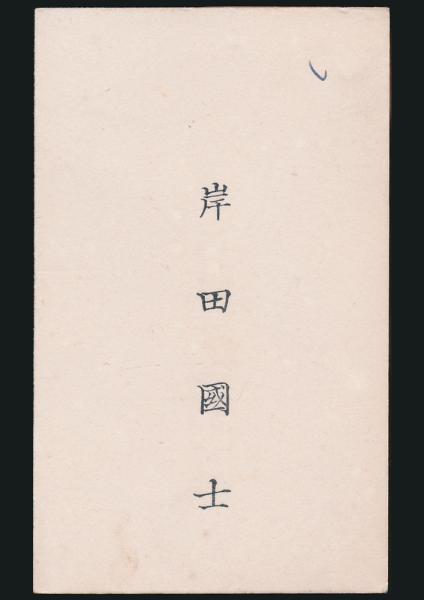 岸田國士